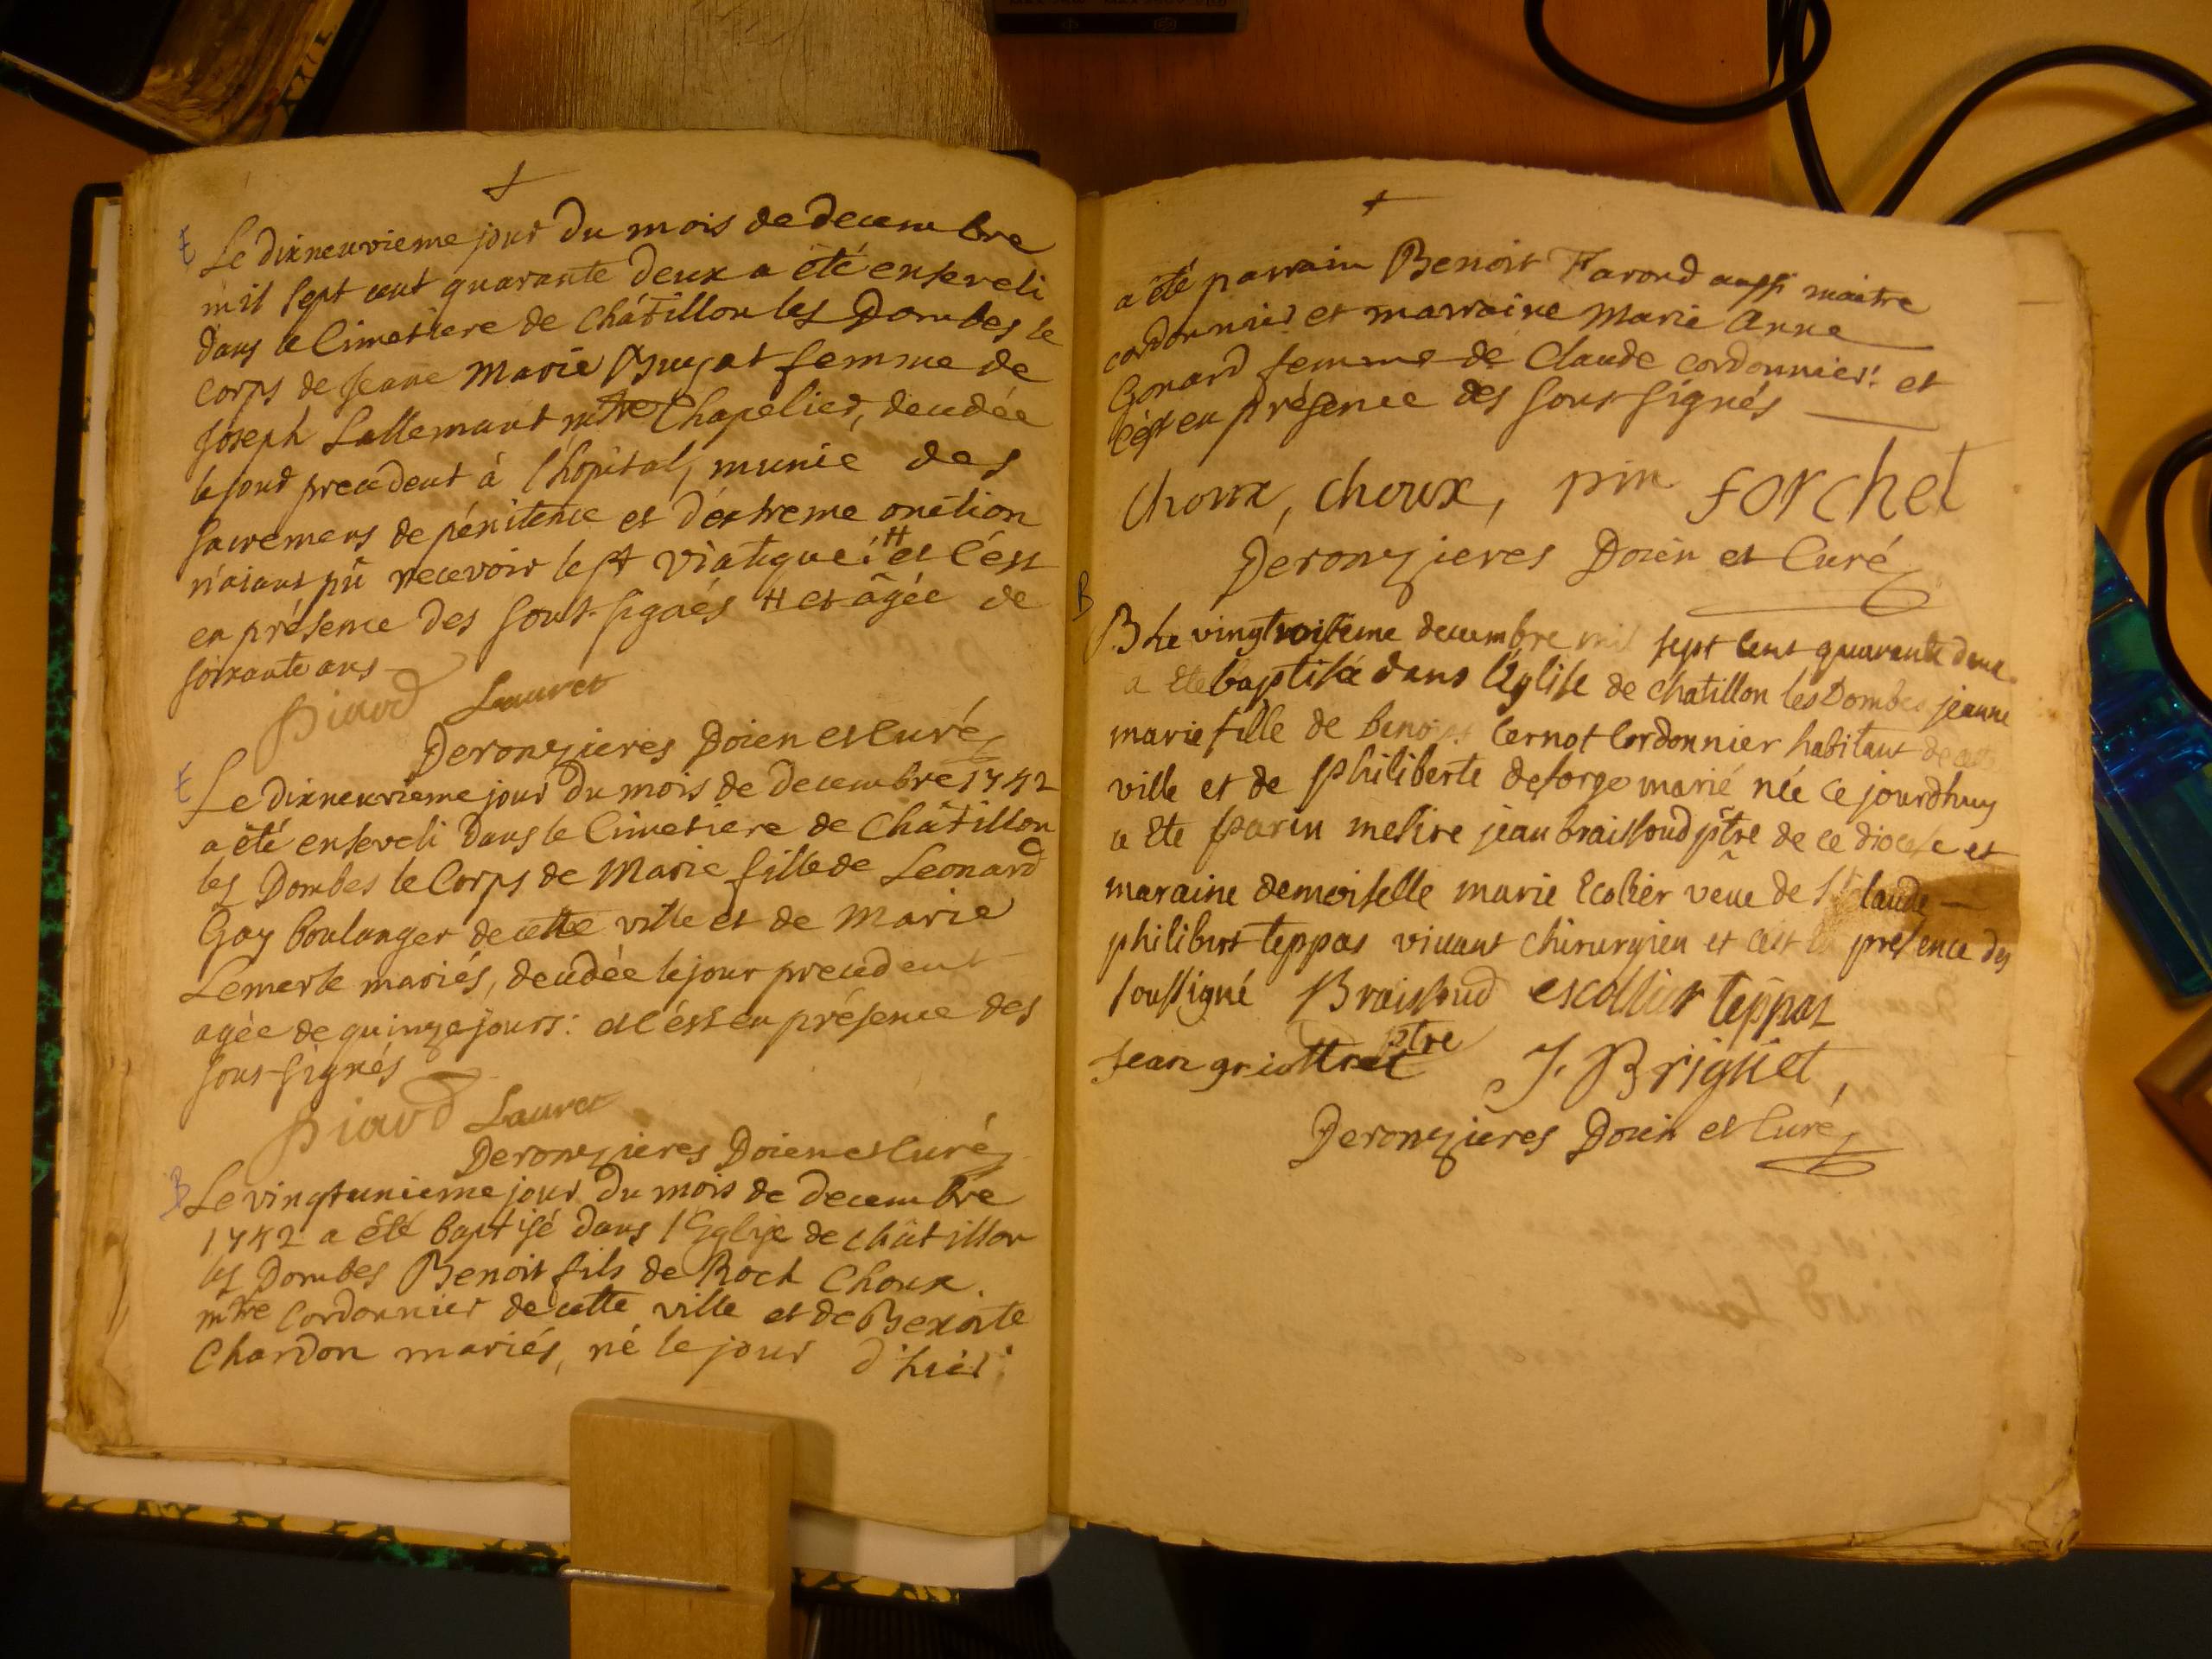 E Le dixneuvieme jour du mois de decembre
mil sept cent quarante deux a été enseveli
dans le Cimetiere de Châtillon les Dombes le
corps de Jeane Marie Buyat femme de
Joseph Lallemant mtre Chapelier, decedée
le jour precedent à l'hôpital, munie des
sacremens de pénitence et d'extreme onction
n'aiant pû recevoir le st viatique: # et c'est
en présence des sous-signés # et âgée de
soixante ans
Laurer
Deronzieres Doien et Curé
E Le dixneuvieme jour du mois de decembre 1742
a été enseveli dans le Cimetiere de Châtillon
les Dombes le Corps de Marie fille de Leonard
Gay boulanger de cette ville et de Marie
Lemerle mariés, decedée le jour precedent
agée de quinze jours: et c'est en présence des
sous-signés
Laurer
Deronzieres Doien et Curé
B Le vingtunieme jour du mois de decembre
1742 a été baptisé dans l'Eglise de châtillon
les Dombes Benoit fils de Roch Choux
mtre Cordonnier de cette ville et de Benoite
Chardon mariés, né le jour d'hier:
a été parrain Benoit Farond aussi maitre
cordonnier et marraine Marie Anne
Gonard femme de Claude cordonnier: et
c'est en présence des sous-signés
Choux, choux, pin forchet
Deronzieres Doien et Curé
B
B Le vingtroisieme decembre mil sept cent quarante deux
a ete baptisée dans l'Eglise de chatillon les Dombes jeanne
marie fille de benoist Cernot Cordonnier habitant de cette
ville et de philiberte deforge marié née ce jourdhuy
a ete parin mesire jean braissoud ptre de ce diocese et
maraine demoiselle marie Ecolier veue de Sr Claude
philibert teppas vivant chirurgien et cest en presence des
soussigné Braissoud escollier teppaz
ptre
Jean griottret J. Briguet,
Deronzieres Doien et Curé